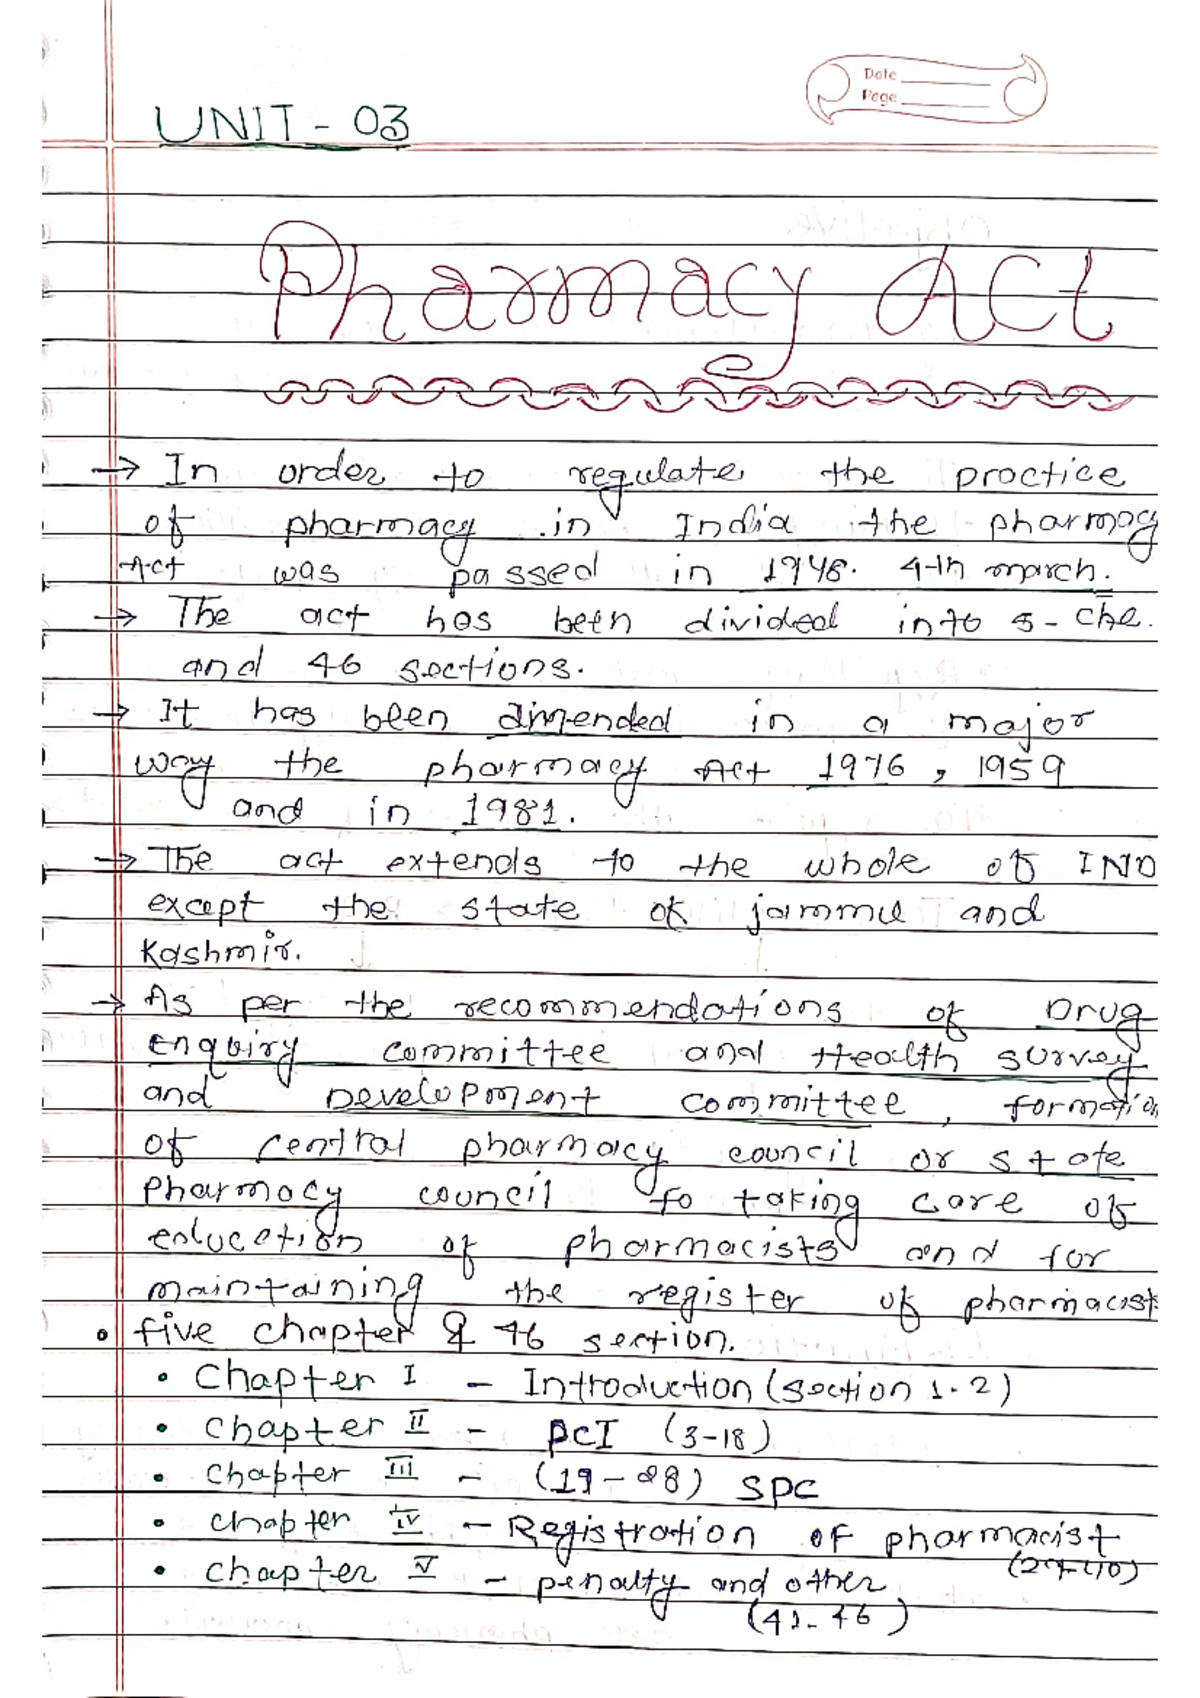 Date
Page
UNIT - 03
Pharmacy Act
→ In order to regulate the practice
of pharmacy in India the pharmacy
Act was passed in 1948. 4th march.
→ The act has been divided into 5 - Che.
and 46 sections.
→ It has been amended in a major
way the pharmacy Act 1976, 1959
and in 1981.
→ The act extends to the whole of IND
except the state of jammu and
Kashmir.
→ As per the recommendations of Drug
Enquiry committee and Health survey
and Development committee, formation
of central pharmacy council or state
pharmacy council fo taking care of
education of pharmacists and for
maintaining the register of pharmacist
• five chapter & 46 section.
• Chapter I - Introduction (section 1-2)
• chapter II - PCI (3-18)
• chapter III - (19-28) SPC
• chapter IV - Registration of pharmacist
(29-40)
• chapter V - penalty and other
(41-46)